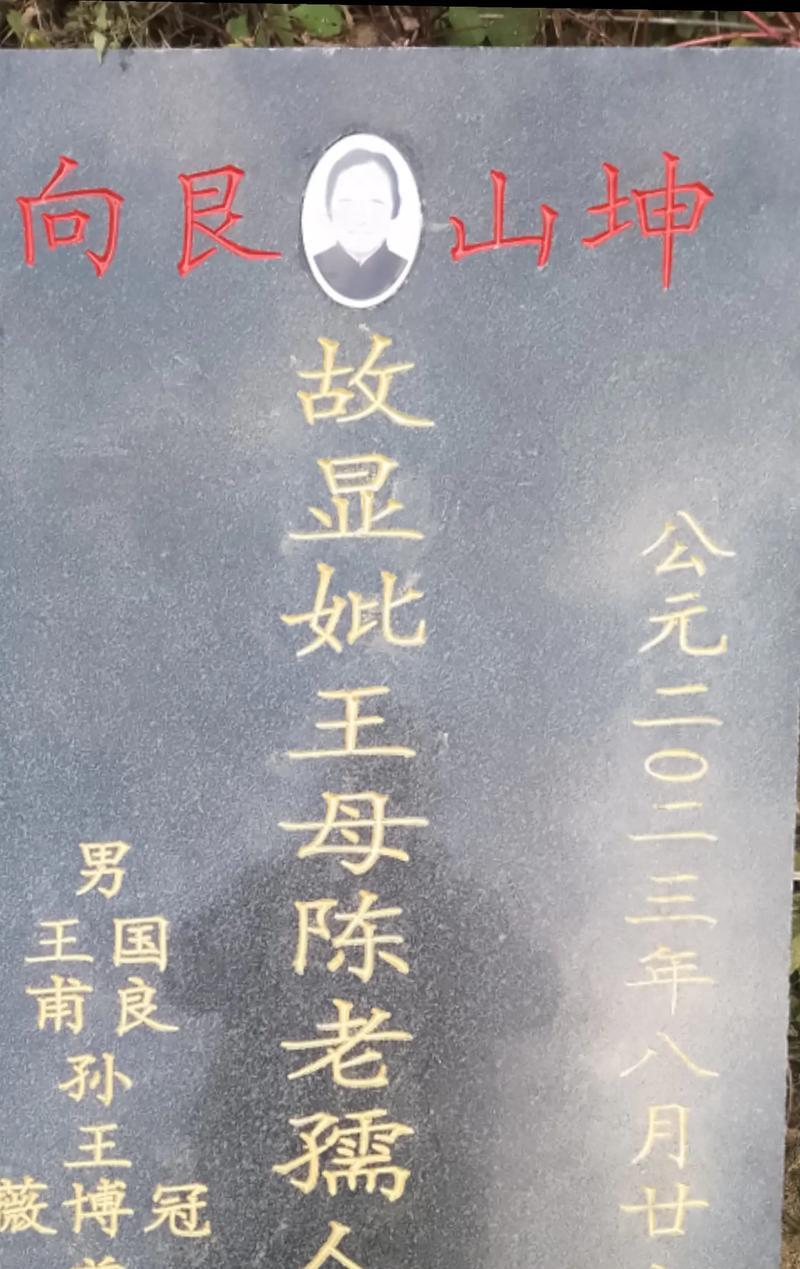 坤山艮向
公元二〇二三年八月廿
故显妣王母陈老孺人
男
国良
王甫
孙
王
冠
博
薇